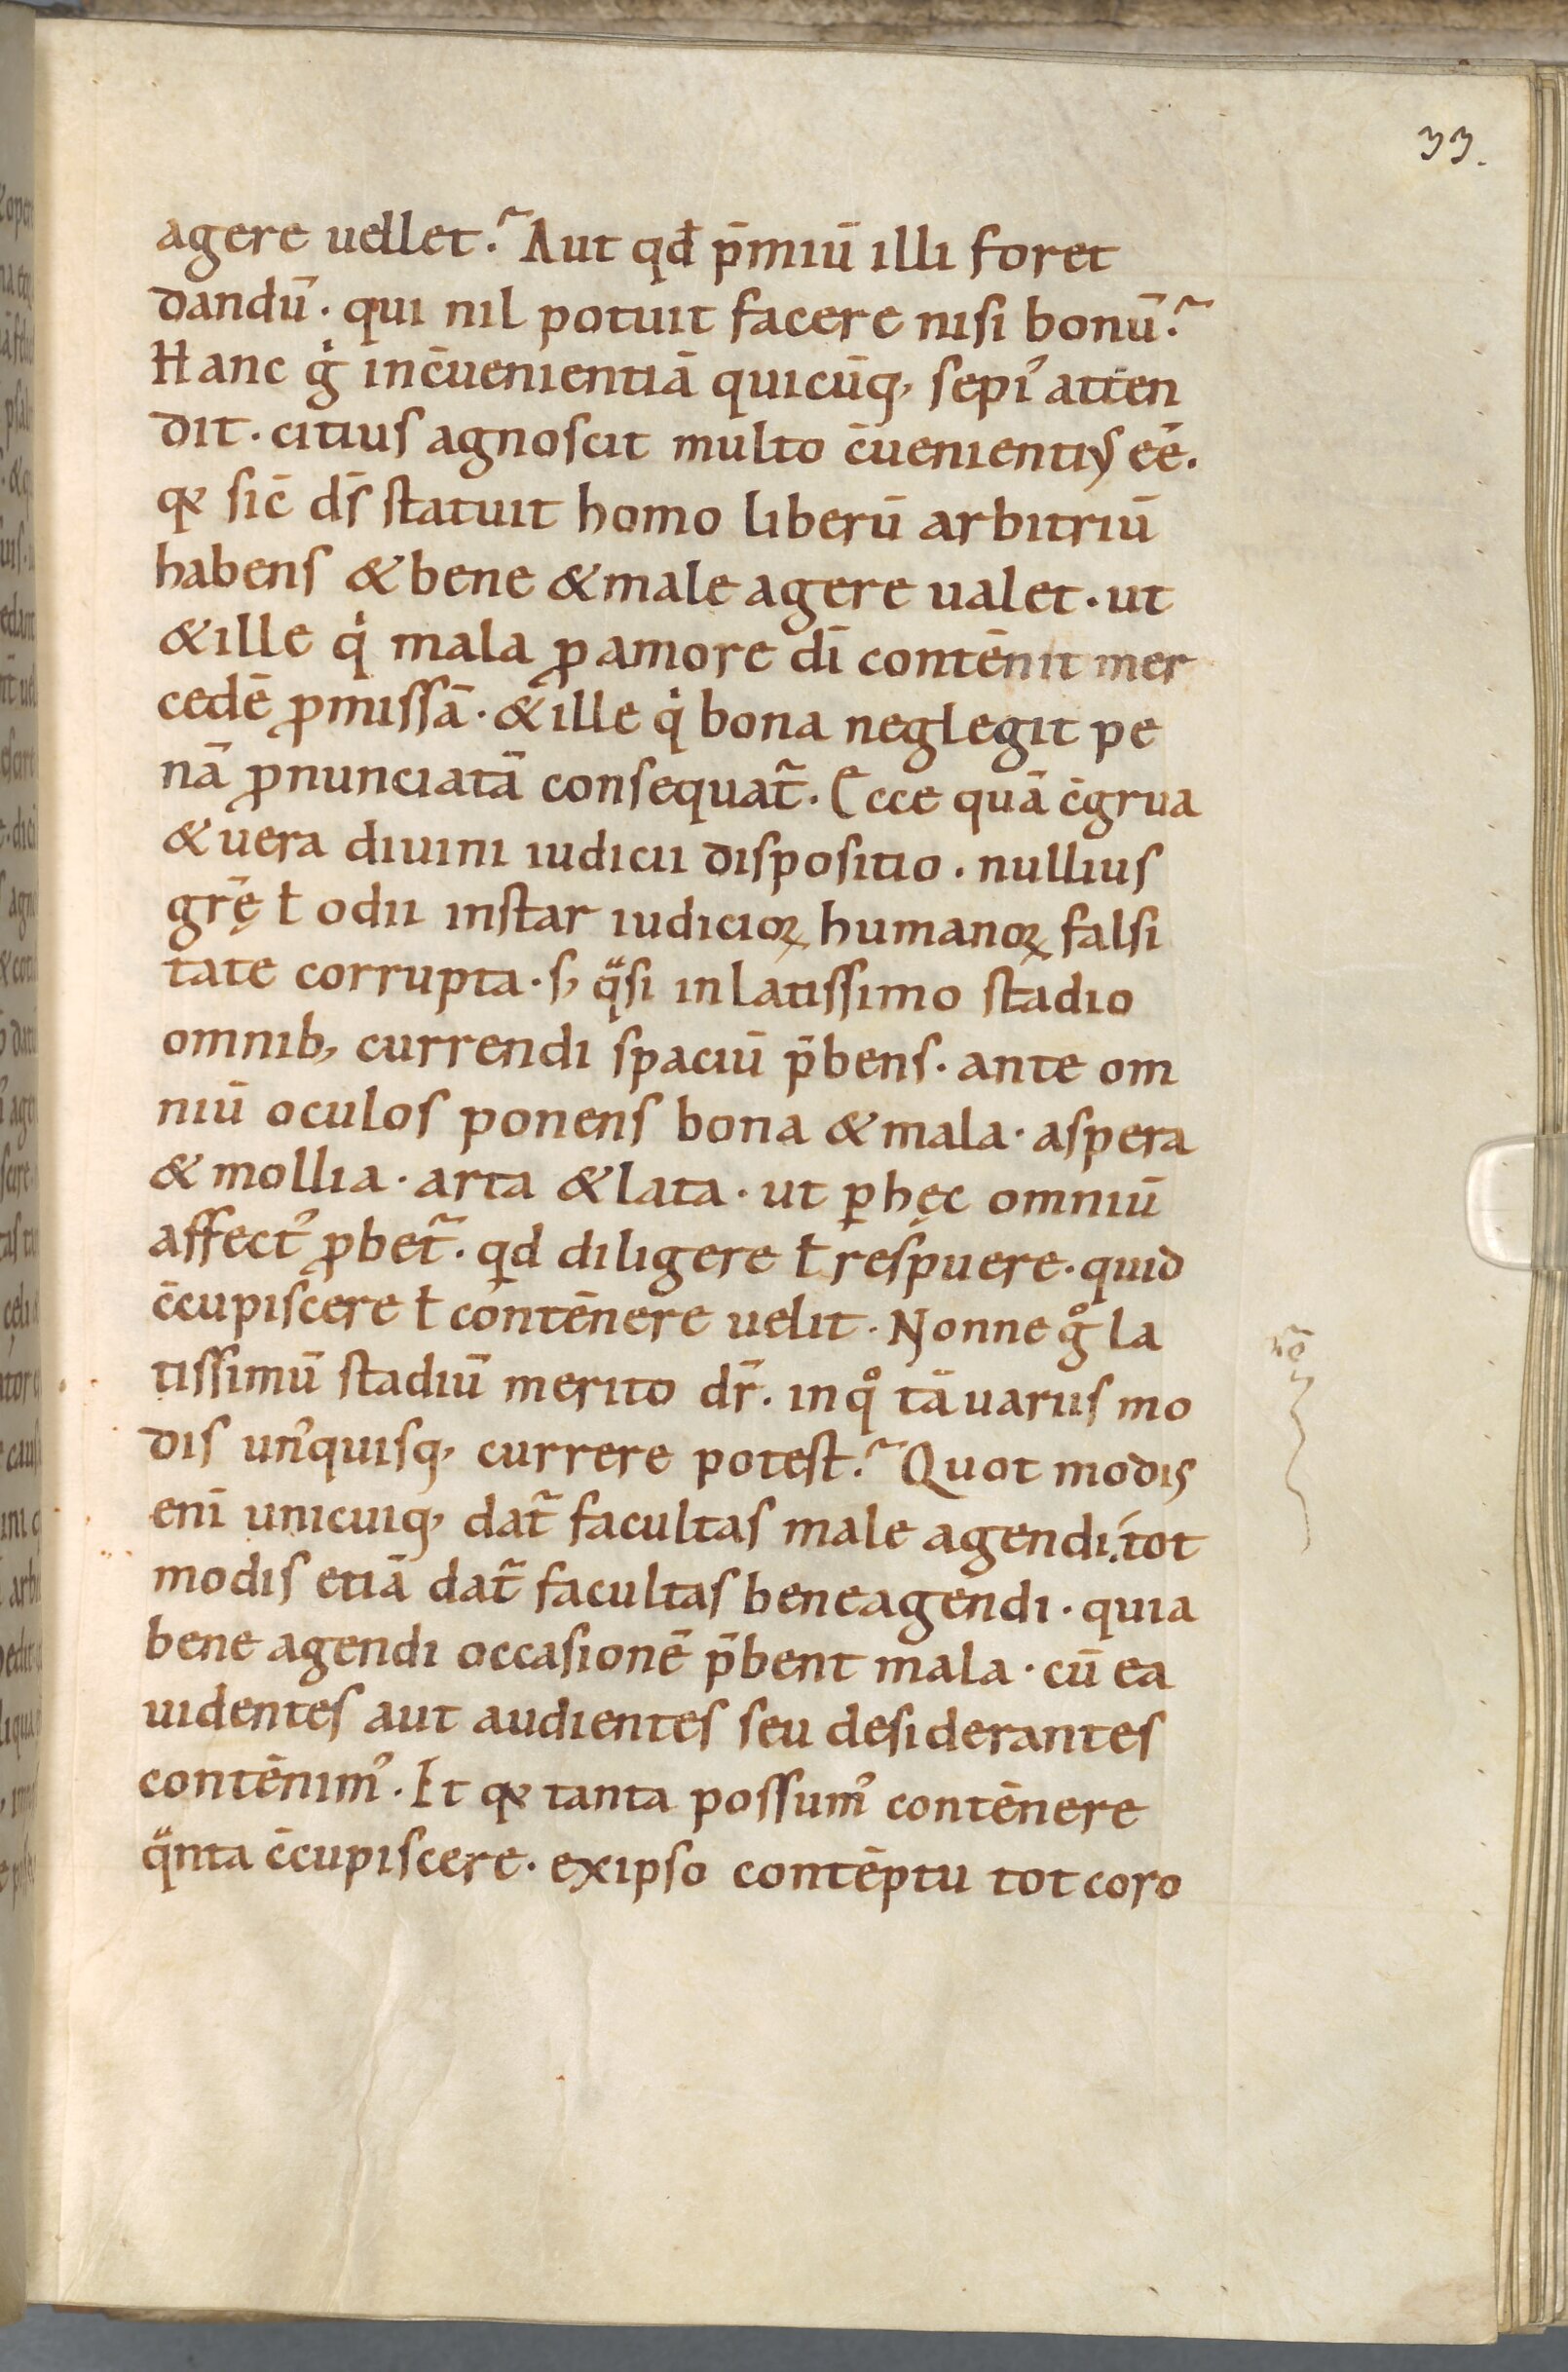 33.
agere uellet.̃ Aut qđ p̄miū illi foret
dandū · qui nil potuit facere nisi bonū.̃
Hanc gͥ inc̄uenientiā quicūq, sepiꝰ atten
dit · citius agnoscit multo c̄uenientiꝰ eē.
qꝫ sic̄ ds̄ statuit homo liberū arbitriū
habens & bene & male agere ualet · ut
& ille qͥ mala ꝓ amore dī contēnit mer
cedē ꝓmissā · & ille qͥ bona neglegit pe
nā ꝓnunciatā consequat᷑. Ecce quā c̄grua
& uera diuini iudicii dispositio · nullius
gr̄ę ł odii instar iudicioꝝ humanoꝝ falsi
tate corrupta · s, qᷓsi in latissimo stadio
omnib, currendi spaciū p̄bens · ante om
niū oculos ponens bona & mala · aspera
& mollia · arta & lata · ut ꝑ hęc omniū
affectꝰ ꝓbet᷑ · qd diligere ł respuere · quid
c̄cupiscere ł contēnere uelit · Nonne gͦ la
tissimū stadiū merito dr̄. in qͦ tā uariis mo
dis unꝰquisq, currere potest.̃ Quot modis
enī unicuiq, dat᷑ facultas male agendi. tot
modis etiā dat᷑ facultas bene agendi · quia
bene agendi occasionē p̄bent mala · cū ea
uidentes aut audientes seu desiderantes
contēnimꝰ · Et qꝫ tanta possumꝰ contēnere
qᷓnta c̄cupiscere · ex ipso contēptu tot coro